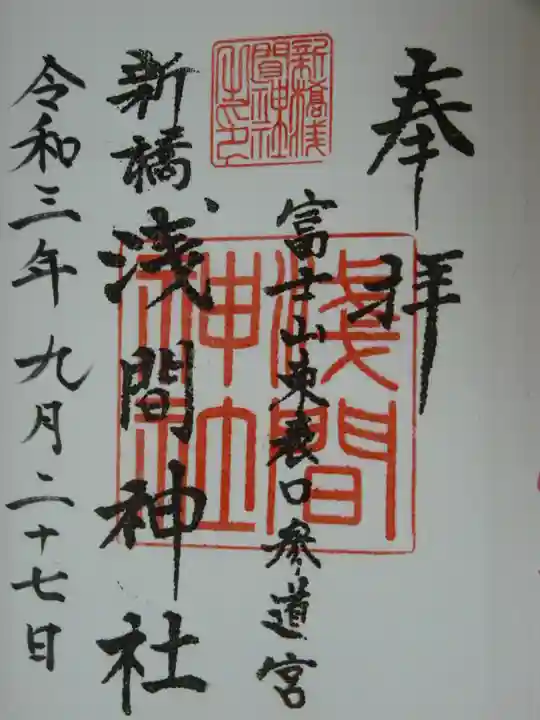 奉拝
富士山東表口参道宮
新橋浅
間神社
之印
淺間
神社
新橋浅間神社
令和三年九月二十七日